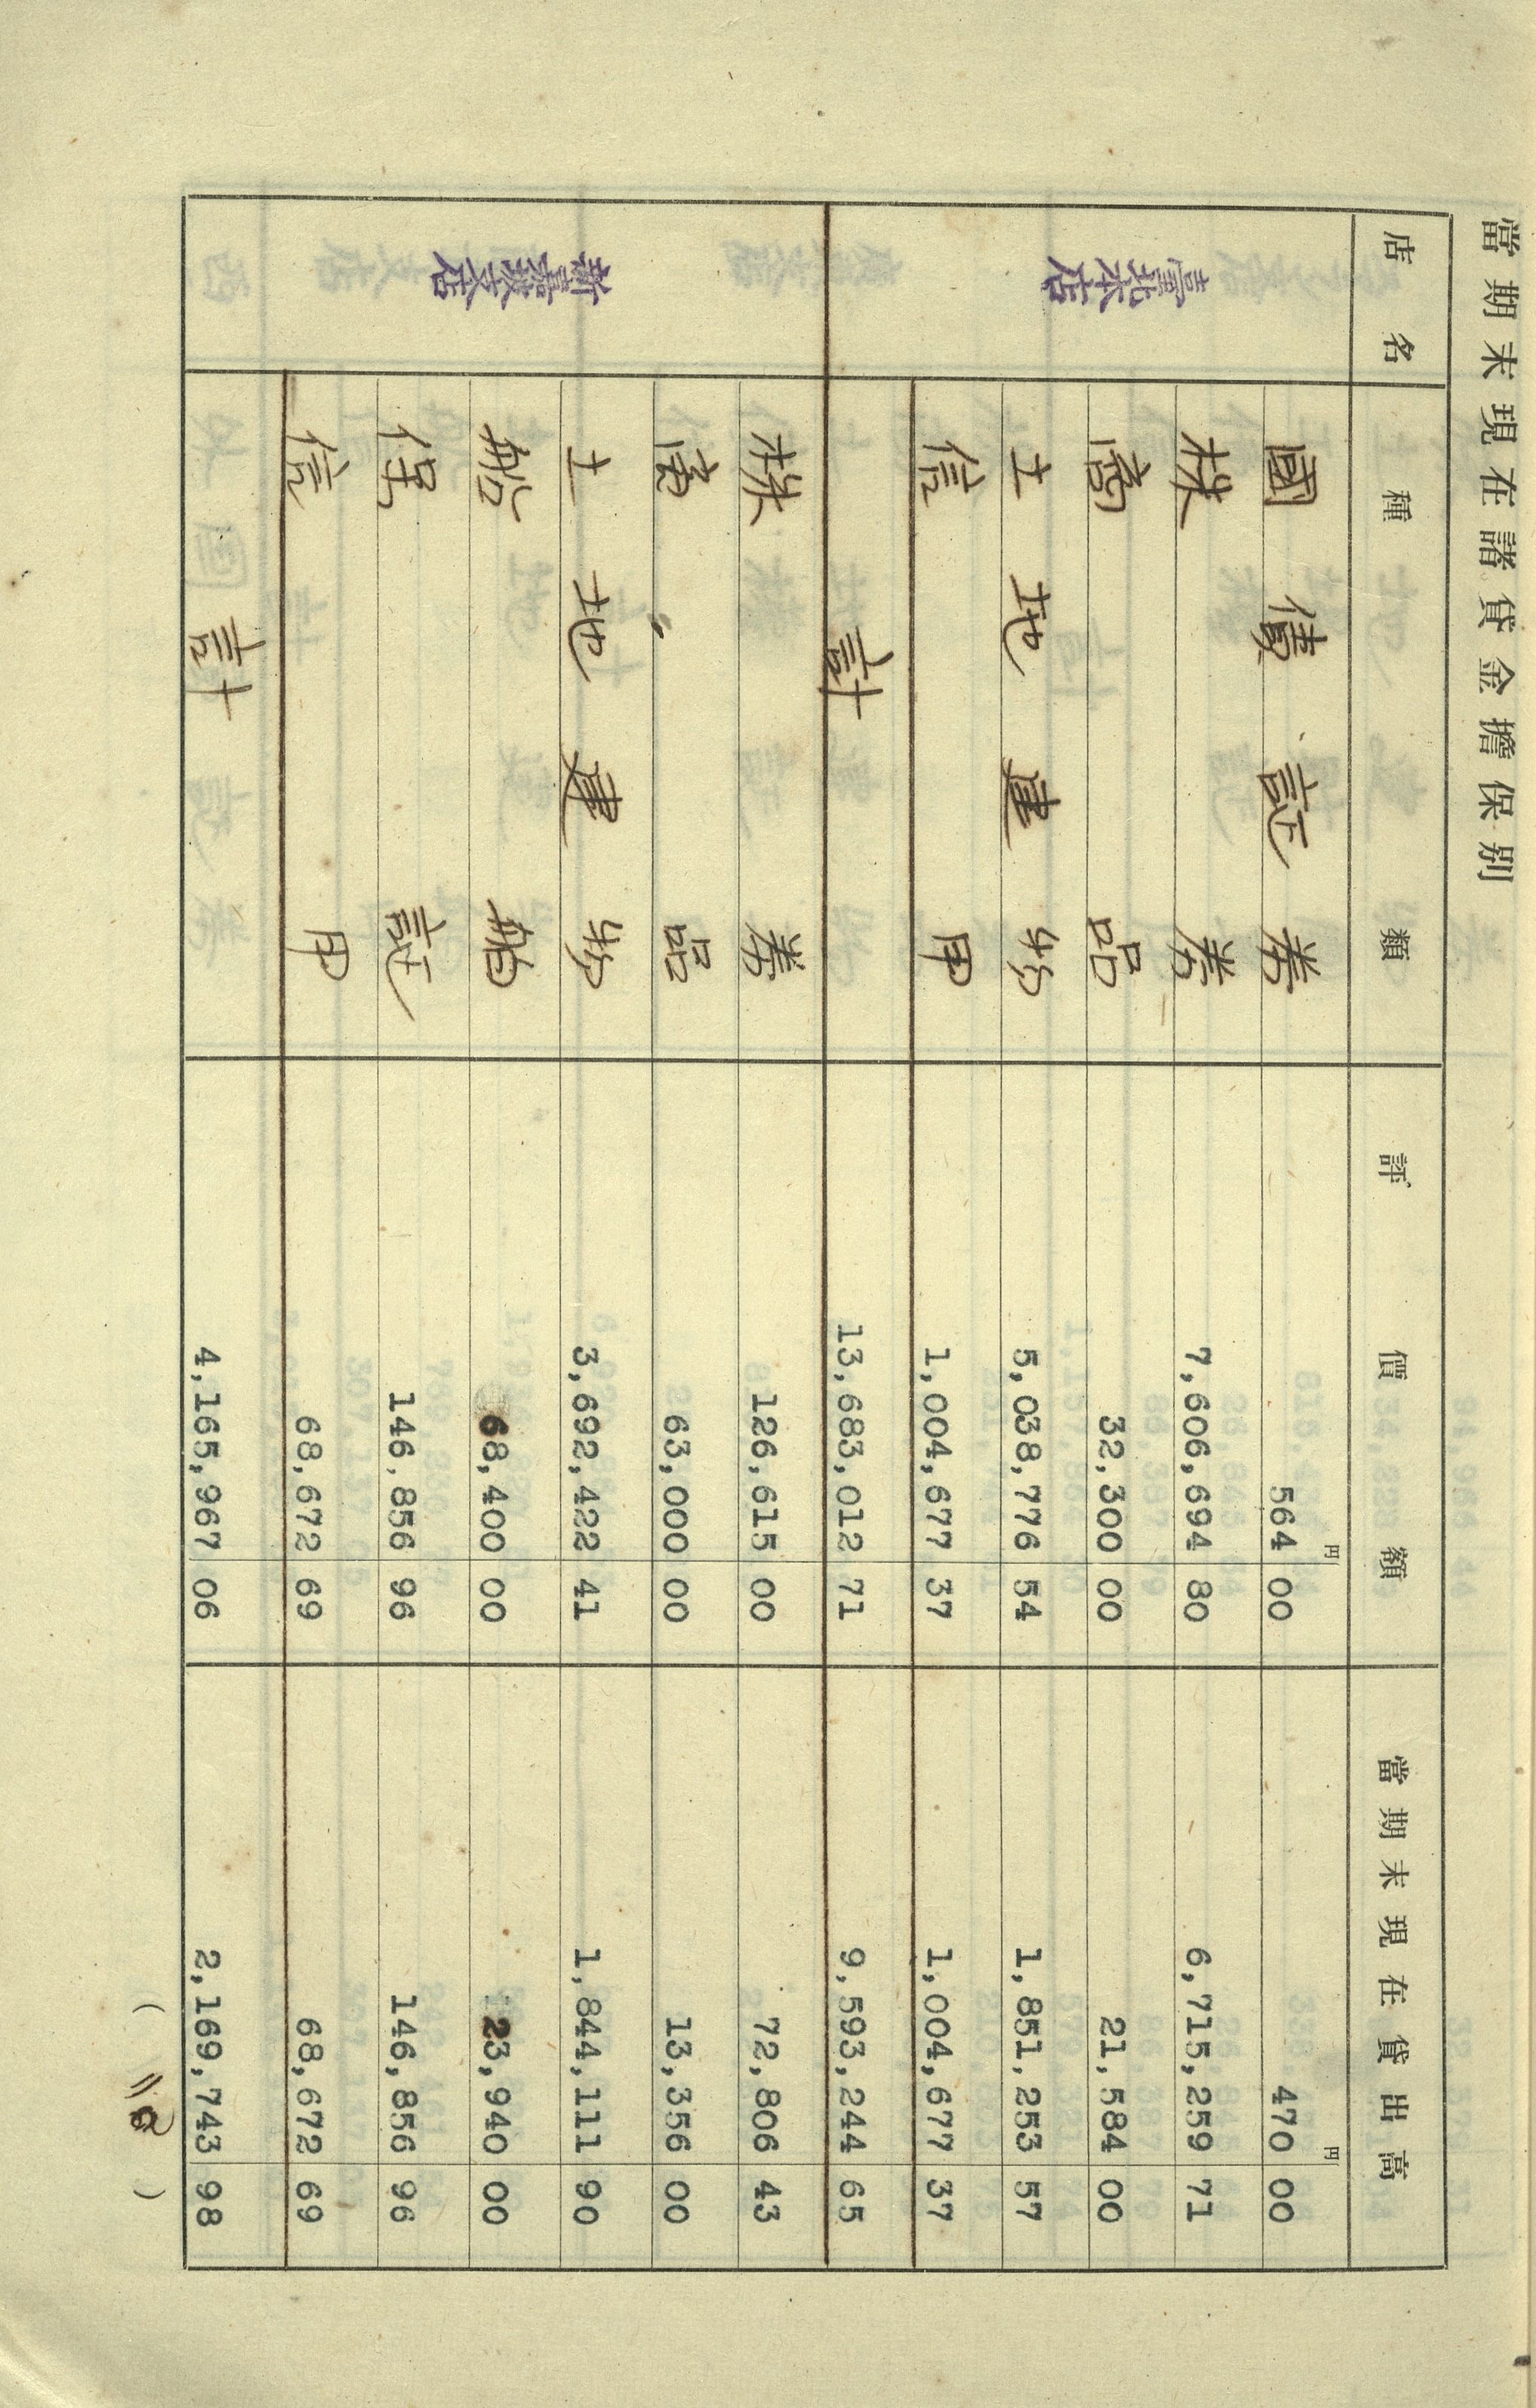 當期末現在諸貸金擔保別
店名 種類 評價額 當期末現在貸出高
臺北本店 國債証券 564 00 円 470 00 円
株券 7,606,694 80 6,715,259 71
商品 32,300 00 21,584 00
土地建物 5,038,776 54 1,851,253 57
信用 1,004,677 37 1,004,677 37
計 13,683,012 71 9,593,244 65
新嘉坡支店 株券 126,615 00 72,806 43
商品 63,000 00 13,356 00
土地建物 3,692,422 41 1,844,111 90
船舶 68,400 00 23,940 00
保証 146,856 96 146,856 96
信用 68,672 69 68,672 69
計 4,165,967 06 2,169,743 98